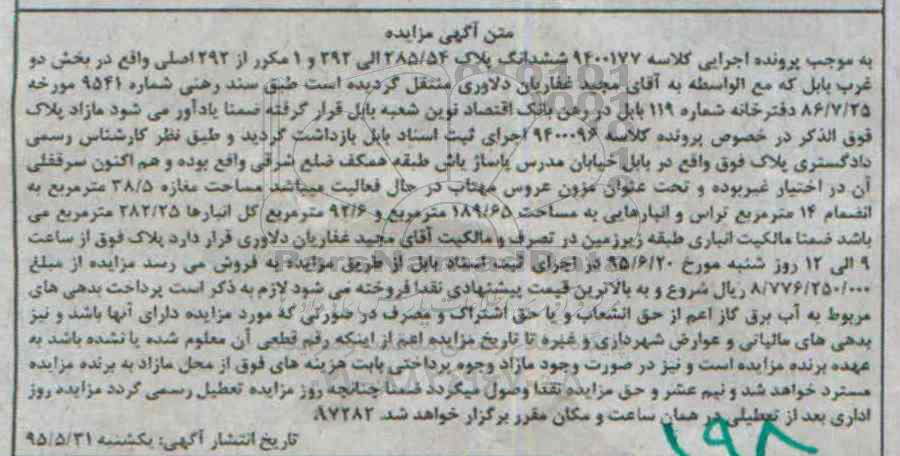 متن آگهی مزایده
به موجب پرونده اجرایی کلاسه ۹۴۰۰۱۷۷ ششدانگ پلاک ۲۸۵/۵۴ الی ۲۹۲ و ۱ مکرر از ۲۹۲ اصلی واقع در بخش دو
غرب بابل که مع الواسطه به آقای مجید غفاریان دلاوری منتقل گردیده است طبق سند رهنی شماره ۹۵۴۱ مورخه
۸۶/۷/۲۵ دفترخانه شماره ۱۱۹ بابل در رهن بانک اقتصاد نوین شعبه بابل قرار گرفته ضمنا یادآور می شود مازاد پلاک
فوق الذکر در خصوص پرونده کلاسه ۹۴۰۰۰۹۶ اجرای ثبت اسناد بابل بازداشت گردید و طبق نظر کارشناس رسمی
دادگستری پلاک فوق واقع در بابل خیابان مدرس پاساژ یاش طبقه همکف ضلع شرقی واقع بوده و هم اکنون سرقفلی
آن در اختیار غیربوده و تحت عنوان مزون عروس مهتاب در حال فعالیت میباشد مساحت مغازه ۳۸/۵ مترمربع به
انضمام ۱۴ مترمربع تراس و انبارهایی به مساحت ۱۸۹/۶۵ مترمربع و ۹۲/۶ مترمربع کل انبارها ۲۸۲/۲۵ مترمربع می
باشد ضمنا مالکیت انباری طبقه زیرزمین در تصرف و مالکیت آقای مجید غفاریان دلاوری قرار دارد پلاک فوق از ساعت
۹ الی ۱۲ روز شنبه مورخ ۹۵/۶/۲۰ در اجرای ثبت اسناد بابل از طریق مزایده به فروش می رسد مزایده از مبلغ
۸/۷۷۶/۲۵۰/۰۰۰ ریال شروع و به بالاترین قیمت پیشنهادی نقدا فروخته می شود لازم به ذکر است پرداخت بدهی های
مربوط به آب برق گاز اعم از حق انشعاب و یا حق اشتراک و مصرف در صورتی که مورد مزایده دارای آنها باشد و نیز
بدهی های مالیاتی و عوارض شهرداری و غیره تا تاریخ مزایده اعم از اینکه رقم قطعی آن معلوم شده یا نشده باشد به
عهده برنده مزایده است و نیز در صورت وجود مازاد وجوه پرداختی بابت هزینه های فوق از محل مازاد به برنده مزایده
مسترد خواهد شد و نیم عشر و حق مزایده نقدا وصول میگردد ضمنا چنانچه روز مزایده تعطیل رسمی گردد مزایده روز
اداری بعد از تعطیلی در همان ساعت و مکان مقرر برگزار خواهد شد. ۹۷۲۸۲
تاریخ انتشار آگهی: یکشنبه ۹۵/۵/۳۱
۱۹۸